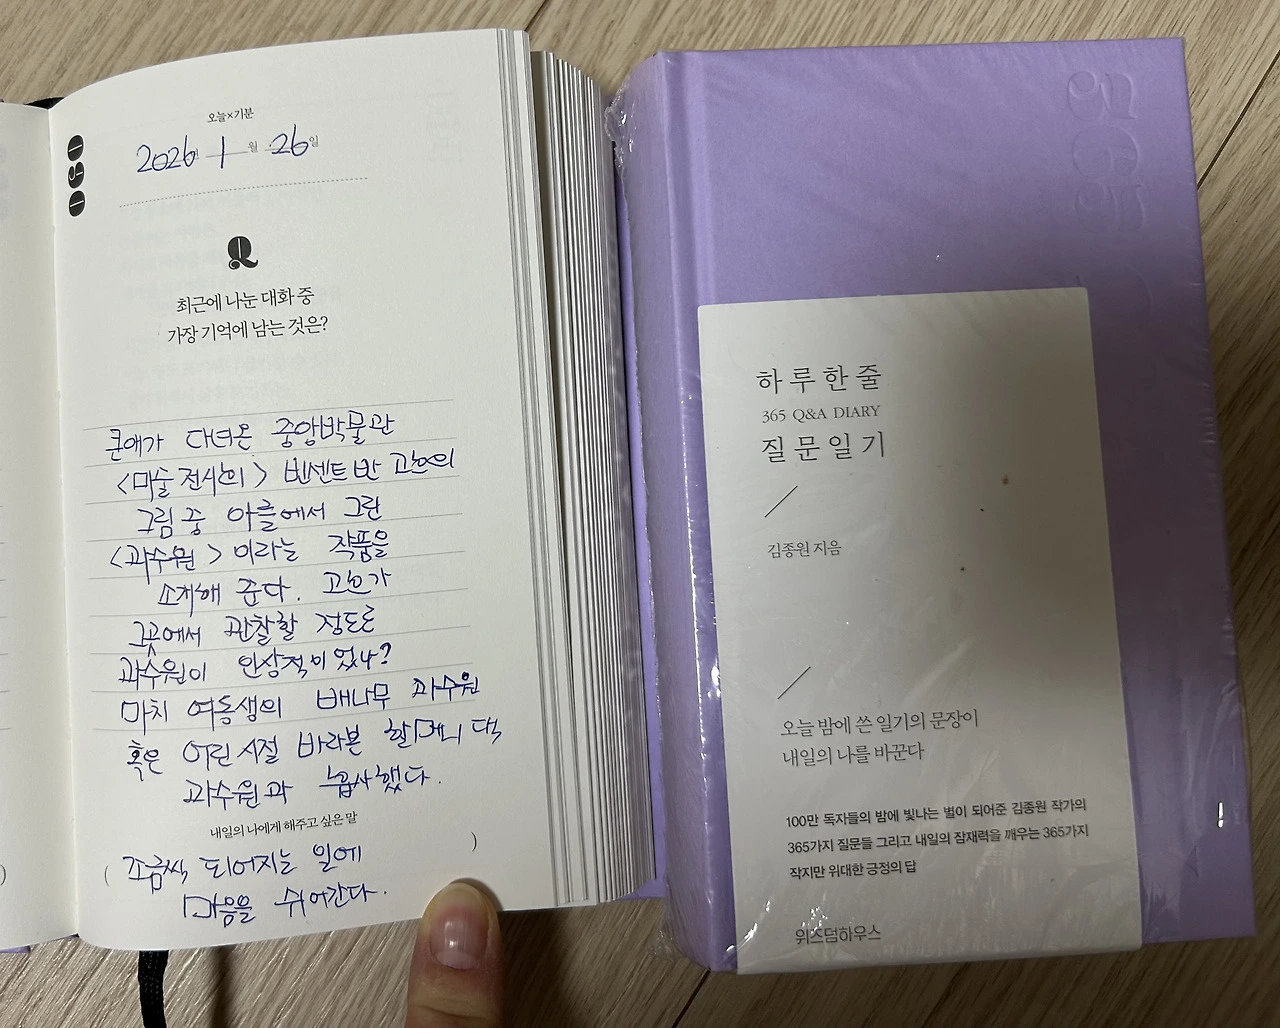 오늘×기분
2026년 1월 26일
Q
최근에 나눈 대화 중
가장 기억에 남는 것은?
큰애가 다녀온 중앙박물관
<미술 전시회> 빈센트 반 고흐의
그림 중 아를에서 그린
<과수원> 이라는 작품을
소개해 준다. 고흐가
그곳에서 관찰할 정도로
과수원이 인상적이었나?
마치 여동생의 배나무 과수원
혹은 어린시절 바라본 할머니 댁
과수원과 흡사했다.
내일의 나에게 해주고 싶은 말
( 조금씩 되어지는 일에 )
마음을 쉬어간다.
하루 한 줄
365 Q&A DIARY
질문 일기
김종원 지음
오늘 밤에 쓴 일기의 문장이
내일의 나를 바꾼다
100만 독자들의 밤에 빛나는 별이 되어준 김종원 작가의
365가지 질문들 그리고 내일의 잠재력을 깨우는 365가지
작지만 위대한 긍정의 답
위즈덤하우스